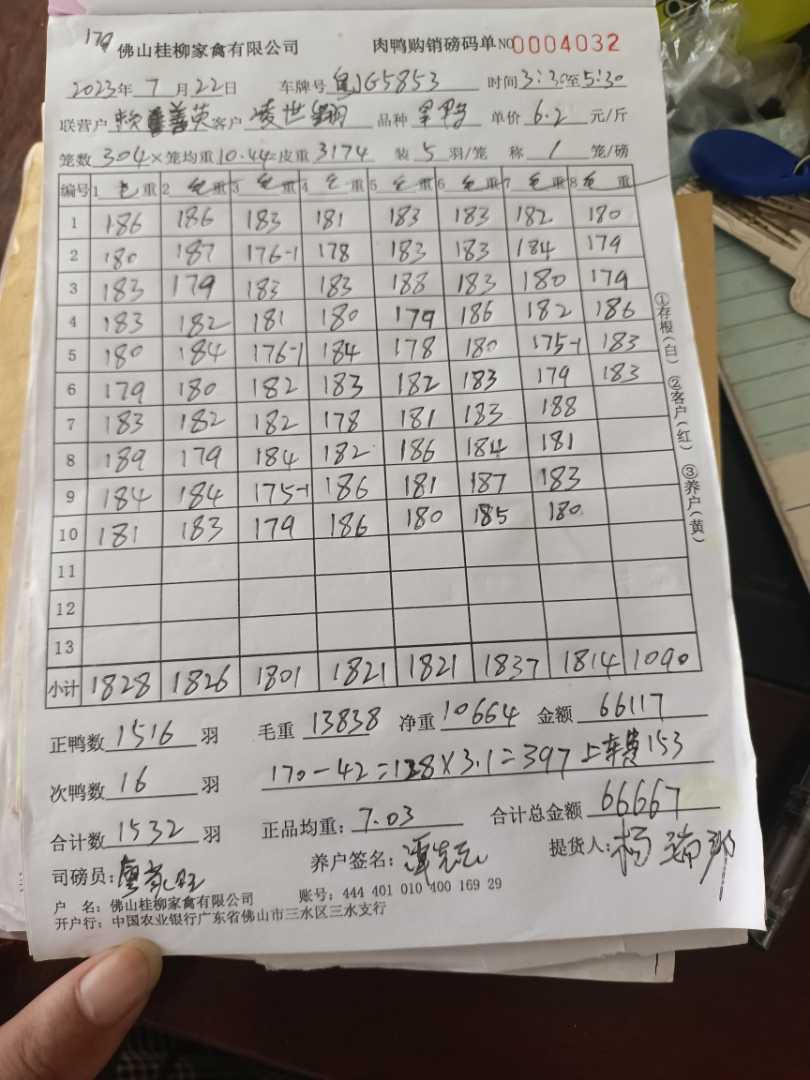 179
佛山桂柳家禽有限公司 肉鸭购销磅码单 NO0004032
2023年 7 月 22 日 车牌号 粤JG5853 时间 3:30至5:30
联营户 英 客户 凌世 品种 单价 6.2 元/斤
笼数 304 × 笼均重 10.44 = 皮重 3174 装 5 羽/笼 称 1 笼/磅
编号 1 毛重 2 毛重 3 毛重 4 毛重 5 毛重 6 毛重 7 毛重 8 毛重
1 186 186 183 181 183 183 182 180
2 180 187 176-1 178 183 183 184 179
3 183 179 183 183 188 183 180 179
4 183 182 181 180 179 186 182 186
5 180 184 176-1 184 178 180 175-1 183
6 179 180 182 183 182 183 179 183
7 183 182 182 178 181 183 188
8 189 179 184 182 186 184 181
9 184 184 175-1 186 181 187 183
10 181 183 179 186 180 185 180
11
12
13
小计 1828 1826 1801 1821 1821 1837 1814 1090
①存根(白) ②客户(红) ③养户(黄)
正鸭数 1516 羽 毛重 13838 净重 10664 金额 66117
次鸭数 16 羽 170-42=128×3.1=397 上车费153
合计数 1532 羽 正品均重: 7.03 合计总金额 66667
司磅员: 养户签名: 提货人: 杨
户 名: 佛山桂柳家禽有限公司 账号: 444 401 010 400 169 29
开户行: 中国农业银行广东省佛山市三水区三水支行